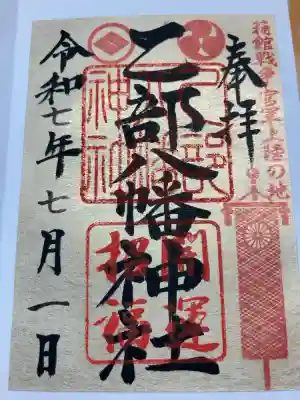 箱館戦争官軍上陸の地
奉拝
乙部八幡神社
乙部
神社
開運
招福
令和七年七月一日